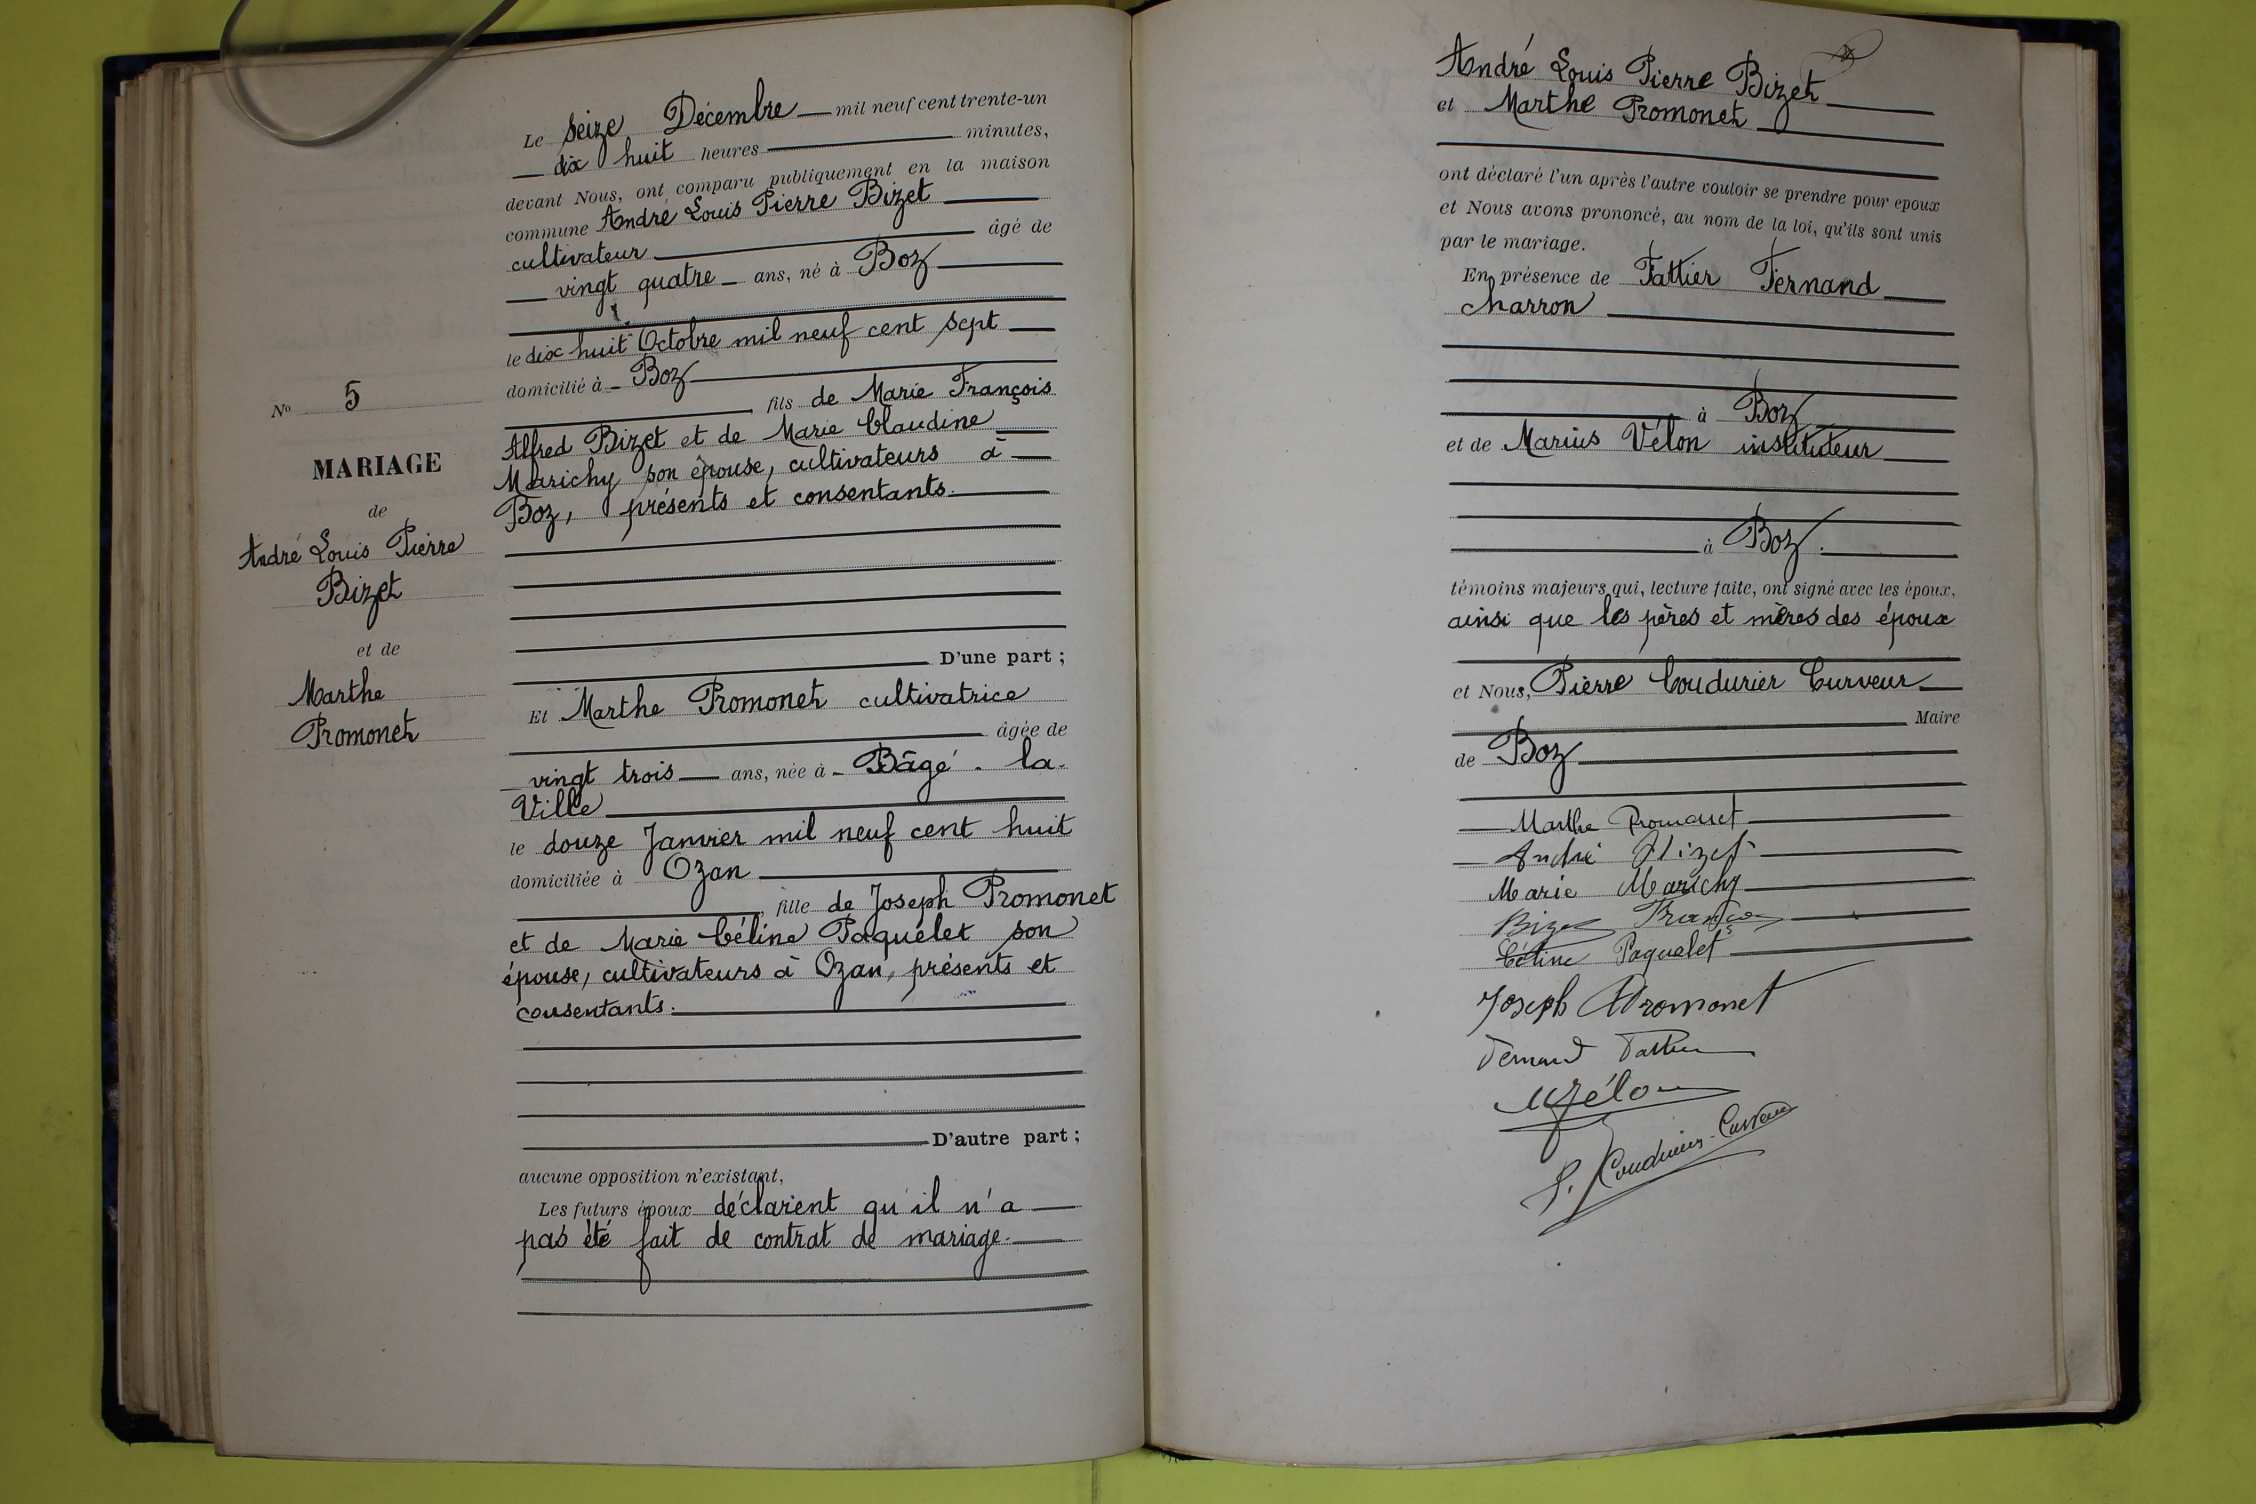 Le seize Décembre mil neuf cent trente-un
dix huit heures minutes,
devant Nous, ont comparu publiquement en la maison
commune André Louis Pierre Bizet
cultivateur âgé de
vingt quatre ans, né à Boz
le dix huit Octobre mil neuf cent sept
domicilié à Boz
fils de Marie François
Alfred Bizet et de Marie Claudine
Marichy son épouse, cultivateurs à
Boz, présents et consentants.
D'une part ;
Et Marthe Promonet cultivatrice
âgée de
vingt trois ans, née à Bâgé-la-
Ville
le douze Janvier mil neuf cent huit
domiciliée à Ozan
, fille de Joseph Promonet
et de Marie Céline Paquelet son
épouse, cultivateurs à Ozan, présents et
consentants.
D'autre part ;
aucune opposition n'existant,
Les futurs époux déclarent qu'il n'a
pas été fait de contrat de mariage.
No 5
MARIAGE
de
André Louis Pierre
Bizet
et de
Marthe
Promonet
André Louis Pierre Bizet
et Marthe Promonet
ont déclaré l'un après l'autre vouloir se prendre pour epoux
et Nous avons prononcé, au nom de la loi, qu'ils sont unis
par le mariage.
En présence de Tattier Fernand
charron
à Boz
et de Marius Vélon instituteur
à Boz.
témoins majeurs qui, lecture faite, ont signé avec les époux,
ainsi que les pères et mères des époux
et Nous, Pierre Coudurier Curveur
Maire
de Boz
Marthe Promonet
André Bizet
Marie Marichy
Bizet François
Céline Paquelet
Joseph Promonet
Fernand Tattier
M Vélon
P. Coudurier-Curveur